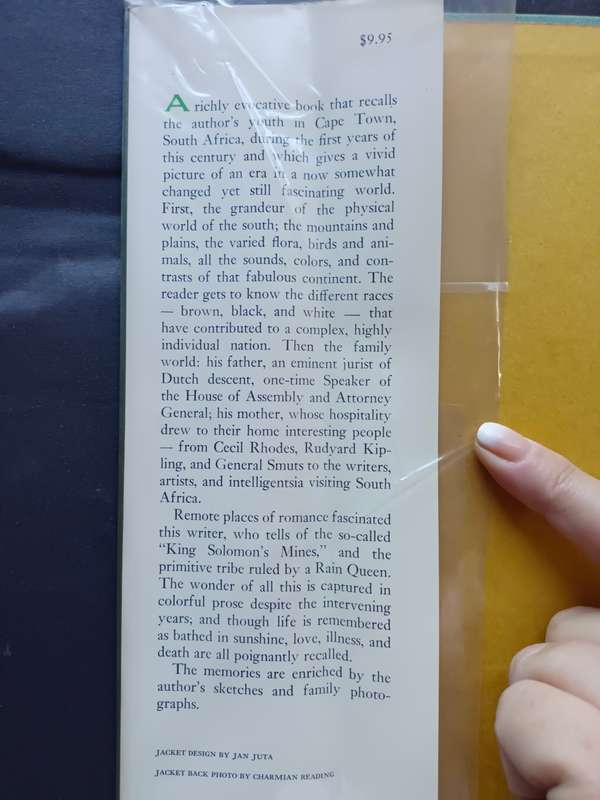 $9.95
A richly evocative book that recalls
the author's youth in Cape Town,
South Africa, during the first years of
this century and which gives a vivid
picture of an era in a now somewhat
changed yet still fascinating world.
First, the grandeur of the physical
world of the south; the mountains and
plains, the varied flora, birds and ani-
mals, all the sounds, colors, and con-
trasts of that fabulous continent. The
reader gets to know the different races
— brown, black, and white — that
have contributed to a complex, highly
individual nation. Then the family
world: his father, an eminent jurist of
Dutch descent, one-time Speaker of
the House of Assembly and Attorney
General; his mother, whose hospitality
drew to their home interesting people
— from Cecil Rhodes, Rudyard Kip-
ling, and General Smuts to the writers,
artists, and intelligentsia visiting South
Africa.
Remote places of romance fascinated
this writer, who tells of the so-called
“King Solomon's Mines,” and the
primitive tribe ruled by a Rain Queen.
The wonder of all this is captured in
colorful prose despite the intervening
years; and though life is remembered
as bathed in sunshine, love, illness, and
death are all poignantly recalled.
The memories are enriched by the
author's sketches and family photo-
graphs.
JACKET DESIGN BY JAN JUTA
JACKET BACK PHOTO BY CHARMIAN READING